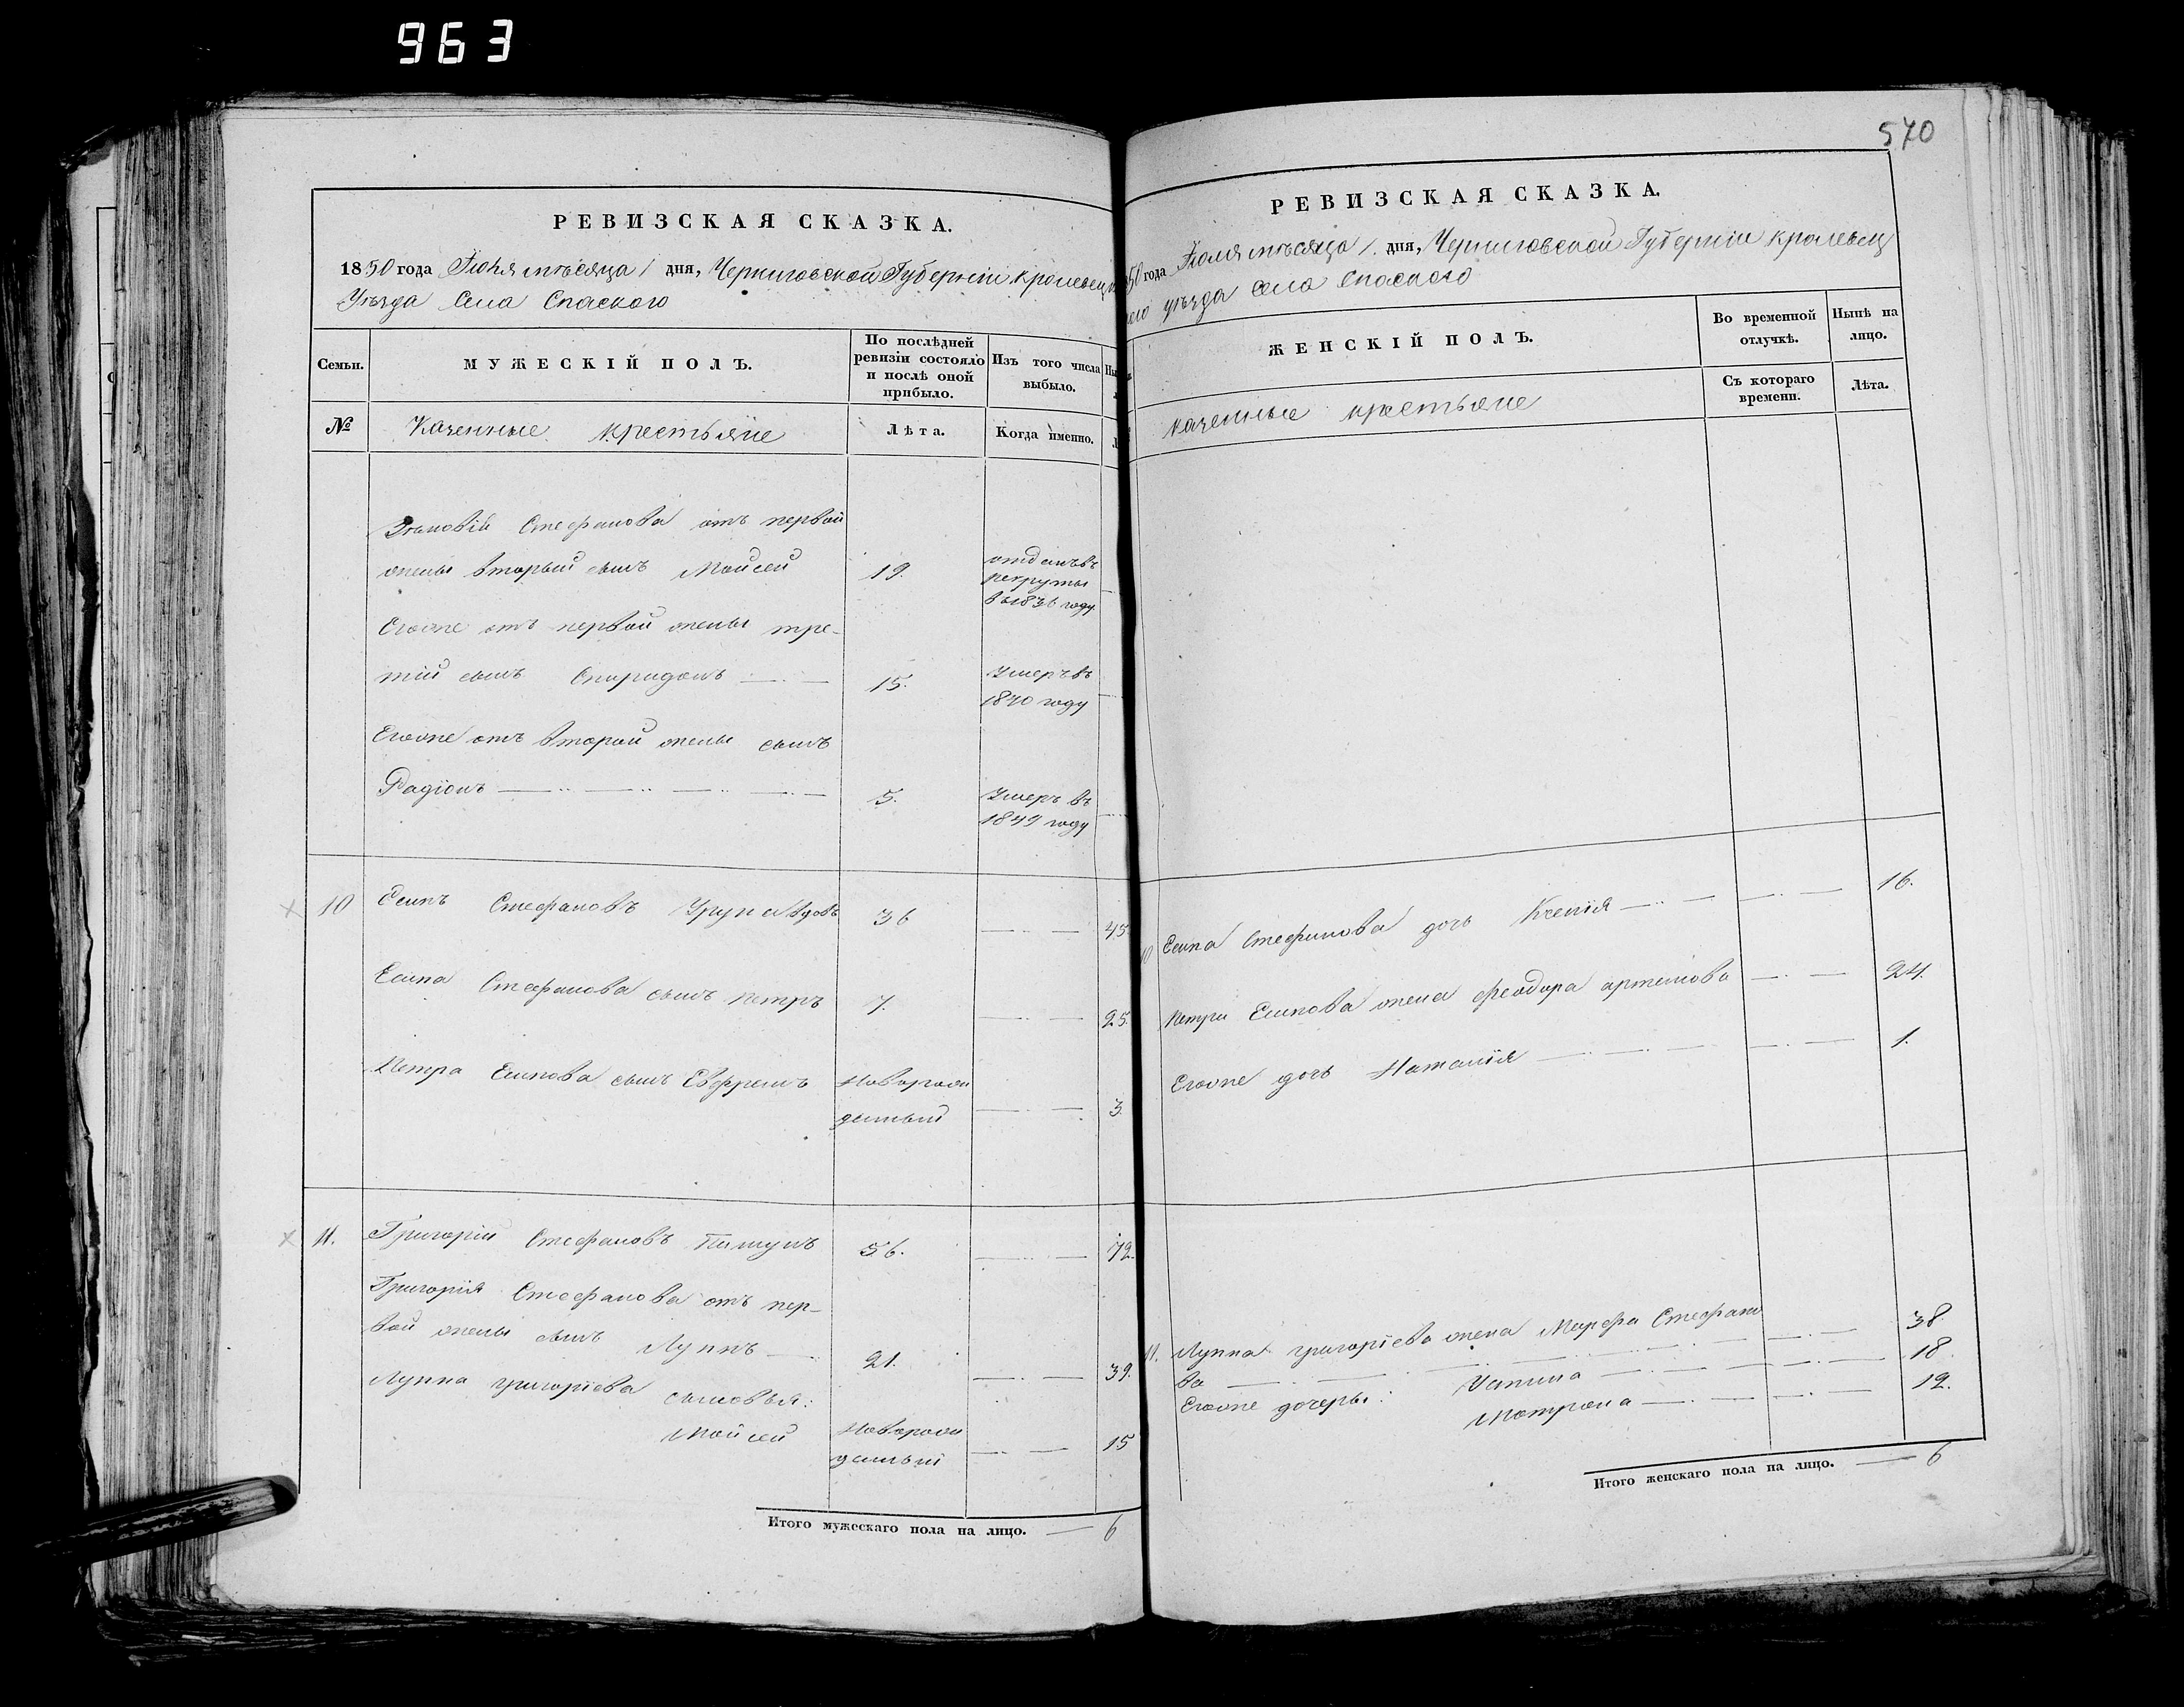 963
570
РЕВИЗСКАЯ СКАЗКА.
1850 года Іюня мѣсяца 1 дня, Черниговской Губерніи кролевец
Уѣзда Села Спаского
Семьи.
МУЖЕСКІЙ ПОЛЪ.
По послѣдней ревизіи состояло и послѣ оной прибыло.
Изъ того числа выбыло.
№
Казенные крестьяне
Лѣта.
Когда именно.
Стефанова отъ первой
жены вторый сынъ Мойсей 19. отданъ въ
рекруты
въ 1836 году
Егоже отъ первой жены тре-
тій сынъ Спиридонъ 15. Умеръ въ
1840 году
Егоже отъ второй жены сынъ
Радіонъ 5. Умеръ въ
1849 году
10 Есипъ Стефановъ вдовъ 36 45.
Есипа Стефанова сынъ Петръ 7. 25.
Петра Есипова сынъ Евфремъ Новорож
денный 3.
11. Григорій Стефановъ 56. 72.
Григорія Стефанова отъ пер-
вой жены сынъ Луппъ 21. 39.
Луппа григоріева сыновья:
Мойсей Новорож
денный 15
Итого мужескаго пола на лицо. 6
РЕВИЗСКАЯ СКАЗКА.
50 года Іюня мѣсяца 1. дня, Черниговской Губерніи кролевец
кого уѣзда Села Спаского
ЖЕНСКІЙ ПОЛЪ.
Во временной отлучкѣ.
Нынѣ на лицо.
Съ котораго времени.
Лѣта.
казенные крестьяне
10 Есипа Стефанова дочь Ксенія 16.
Петра Есипова жена феодора артемова 24.
Егоже дочь Наталія 1.
11. Луппа григоріева жена Марфа Стефано
ва 38
Егоже дочеры: Устина 18.
Матрона 12.
Итого женскаго пола на лицо. 6